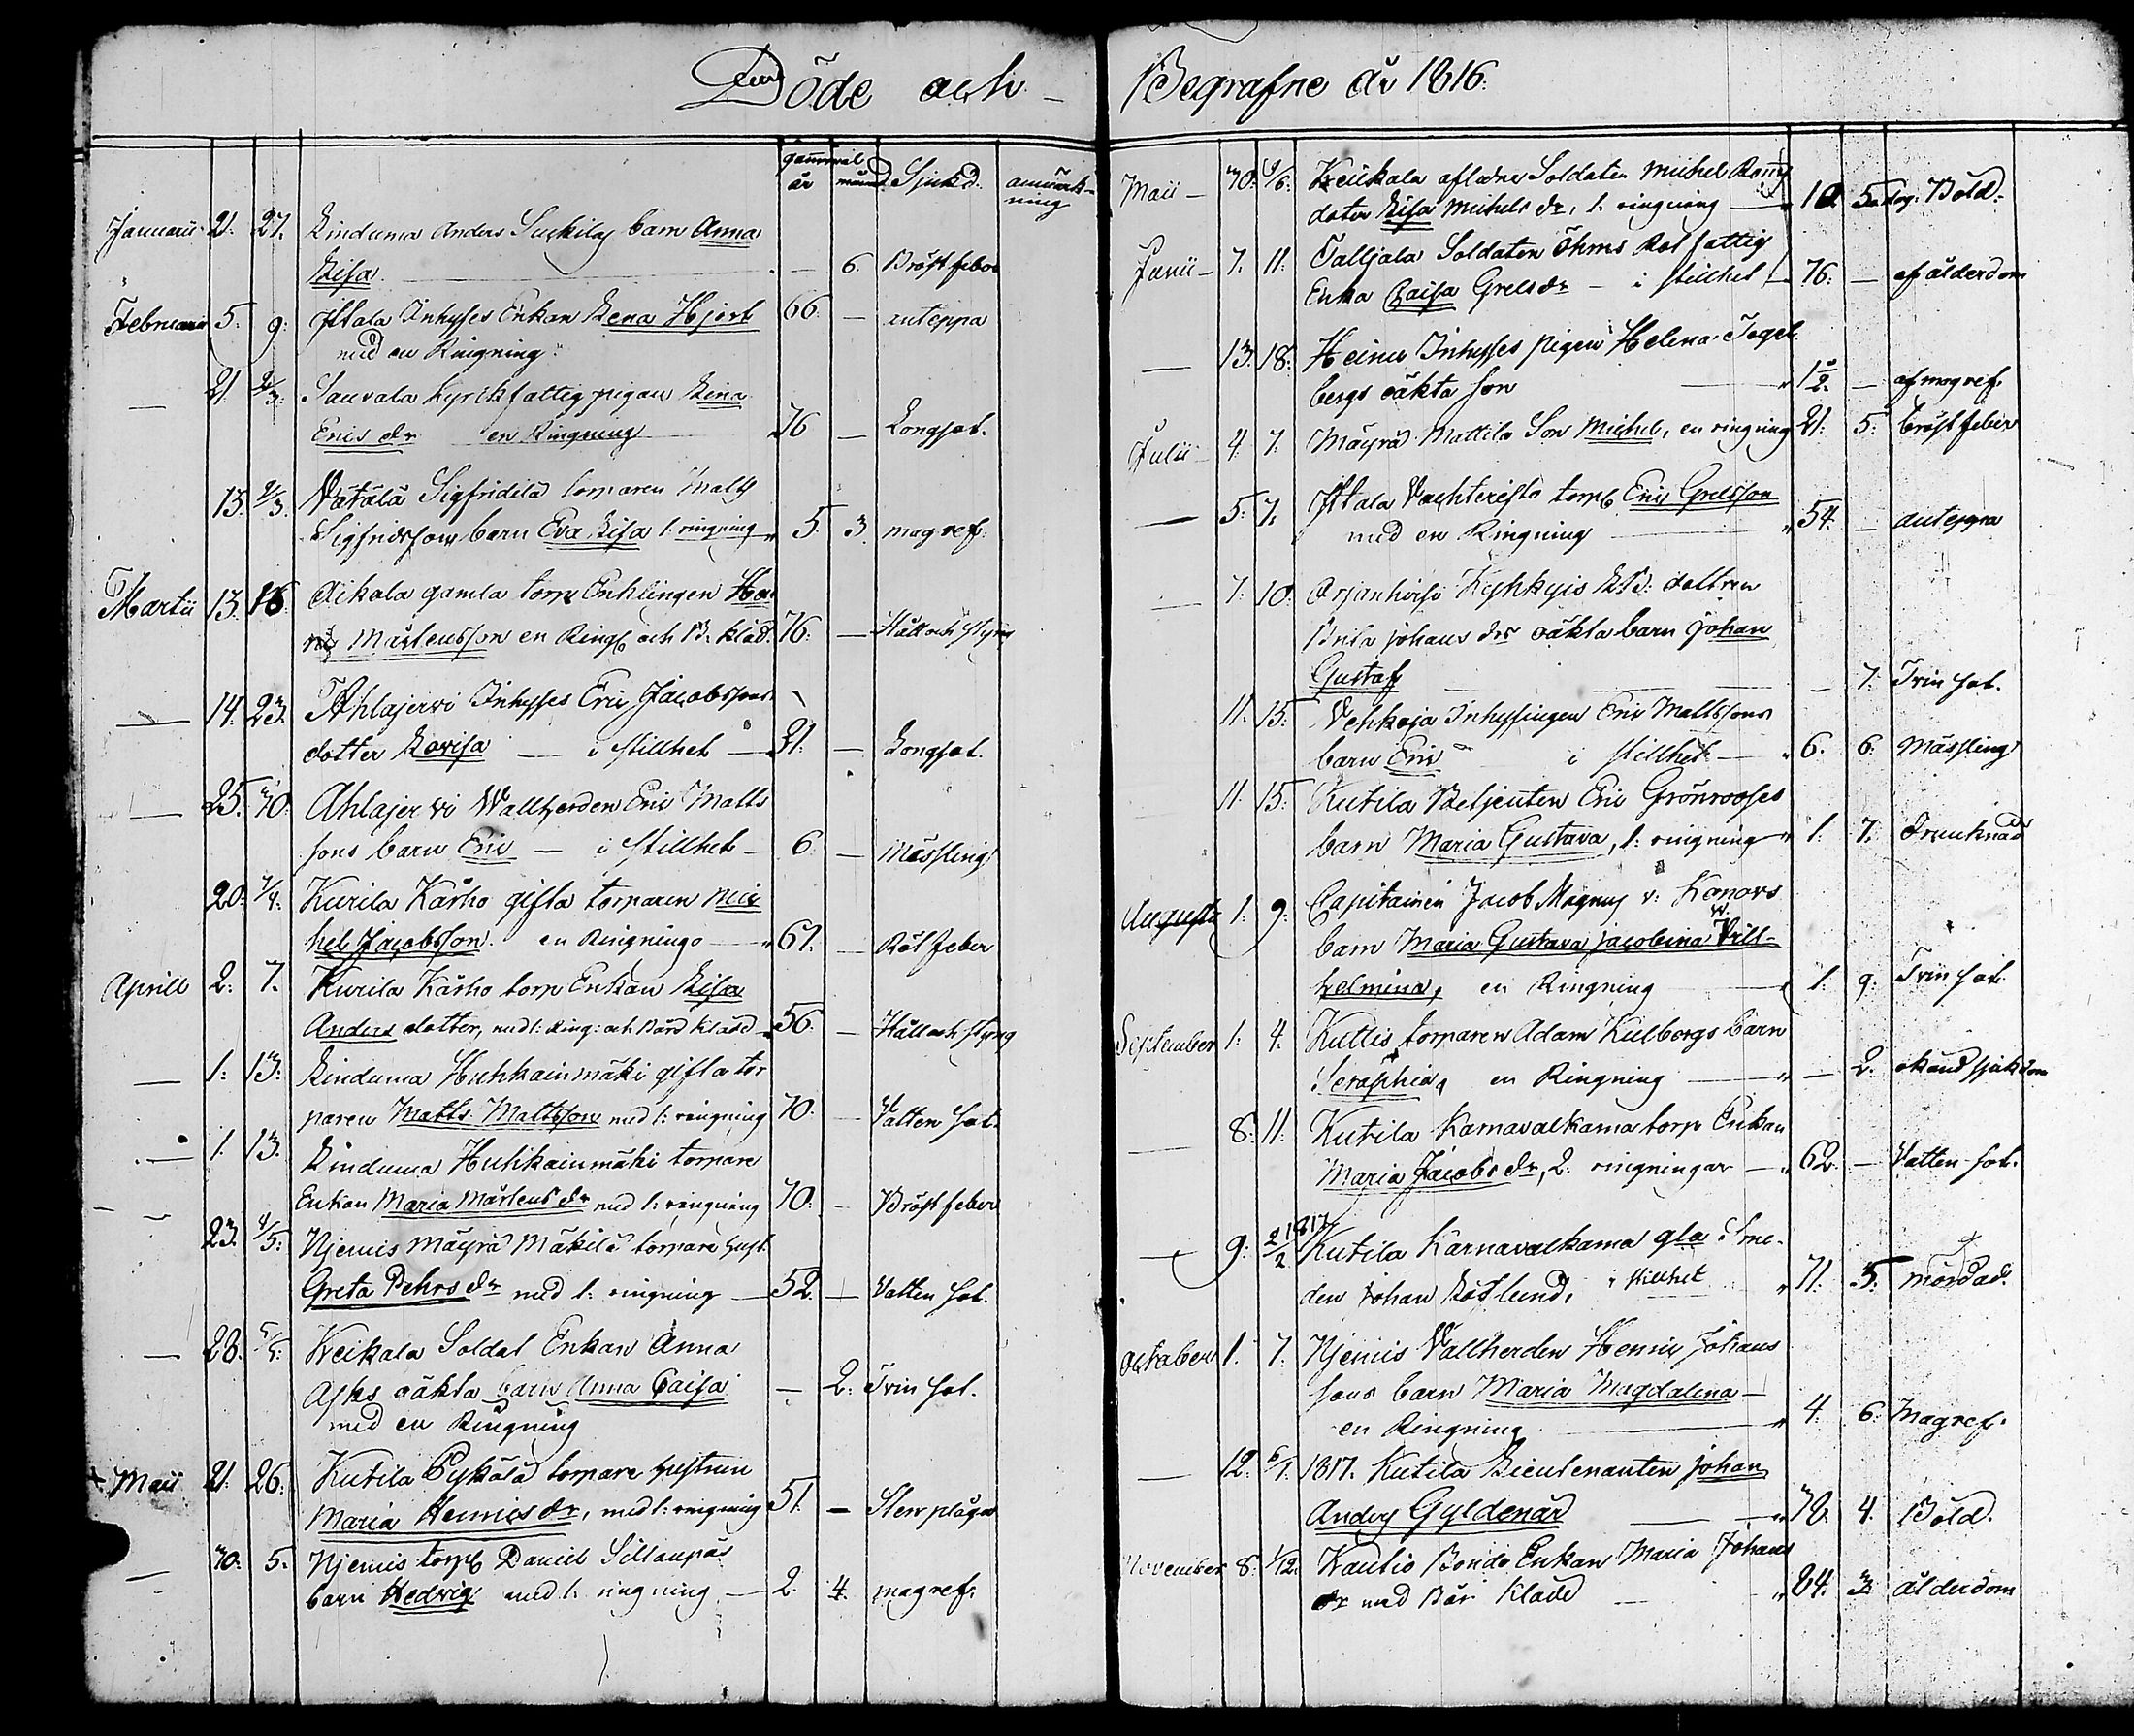 Döde och Begrafne år 1816.
gammal
år månad Sjukd. anmärk-
ning
Januarii 21. 27. Linduma Anders Suckilas barn Anna
Lisa — 6. Bröstfeber
Februarii 5. 9. Ittala Inhyses Enkan Lena Hjort 66. — anteppa
med en Ringning
— 21. 2/3. Sauvala Kyrkfattig pigan Lena
Erics dr en Ringning 76 — Longsot.
13. 2/3. Vätälä Sigfridilä torparen Matts
Sigfridssons barn Eva Lisa 1. ringning 5. 3. magref.
Martii 13. 16. Aikala gamla torp Enklingen Hen
ric Mårtensson en Ring och B. kläd. 76. — Håll och styng
— 14. 23. Ahlajervi Inhyses Eric Jacobssons
dotter Lovisa — i stillhet — 21. — Longsot.
— 25. 30. Ahlajervi Wallherden Eric Matts
sons barn Eric — i stillhet — 6. — Mässling
20. 7/4. Kurila Kärho gifta torparen Mic
hel Jacobsson. en Ringning — 67. — Röt feber
Aprill 2. 7. Kurila Kärho torp Enkan Lisa
Anders dotter, med 1. Ring: och Bård Kläde 56. — Håll och styng
— 1. 13. Linduma Huhkainmäki gifta tor
paren Matts Mattsson med 1: ringning 70. — Vatten sot.
— 1. 13. Linduma Huhkainmäki torpare
Enkan Maria Mårtens dr med 1: ringning 70. — Bröst feber
23. 4/5. Njemis Mäyrä Mäkilä torpare hust.
Greta Pehrs dr med 1: ringning — 52. — Vatten sot.
— 28. 5/5. Weikala Soldat Enkan Anna
Asks oäkta barn Anna Caisa — 2. Trin sot.
med en Ringning
Maii 21. 26. Kutila Pykälä torpare hustrun
Maria Henrics dr, med 1: ringning 51. — Sten plågor
— 30. 5. Njemis torp Daniel Sillanpäs
barn Hedvig med 1. ringning — 2. 4. magref.
Maii — 30. 9/6. Weikala aflidne Soldaten Michel
doter Lisa Michels dr, 1. ringning 10. 5. Böld.
Junii — 7. 11. Talljala Soldaten Öhms Rot fattig
Enka Caisa Grels dr — i stillhet — 76. — af ålderdom
— 13. 18. Heinu Inhyses pigan Helena Tegel
bergs oäkta son 1 1/2. — af magref.
Julii — 4. 7. Mäyrä Mattila Son Michel, en ringning 21. 5. bröst feber
— 5. 7. Ittala Vachteristo torp Eric Grelsson
med en Ringning 54. — anteppa
— 7. 10. Arjanhoisi Kyhkyis dottren
Brita Johans dr oäkta barn Johan
Gustaf — 7. Trin sot.
11. 15. Vehkoja Inhysingen Eric Mattssons
barn Eric i stillhet — 6. 6. Mässling
11. 15. Kutila Betjenten Eric Grönrooses
barn Maria Gustava, 1: ringning 1. 7. Drunknad
Augusti 1. 9. Capitainen Jacob Magnus v: Konows
barn Maria Gustava Jacobina Vill-
helmina, en Ringning 1. 9. Trin sot.
September 1. 4. Kuttis torparen Adam Kulbergs barn
Seraphia, en Ringning — 2. okänd sjukdom
— 8. 11. Kutila Karnavalkama torp Enkan
Maria Jacobs dr, 2: ringningar — 62. — Vatten sot.
— 9. 2/2 1817 Kutila Karnavalkama gla Sme-
den Johan Löflund, i stillhet 71. 5. mördad.
October 1. 7. Njemis Vallherden Henric Johans
sons barn Maria Magdalena —
en Ringning 4. 6. Magref.
— 12. 6/1. 1817. Kutila Lieutenanten Johan
Anders Gyldenär 70. 4. Böld.
November 8. 1/12. Kautio Bonde Enkan Maria Johans
dr med Bår Kläde 84. 3. ålderdom